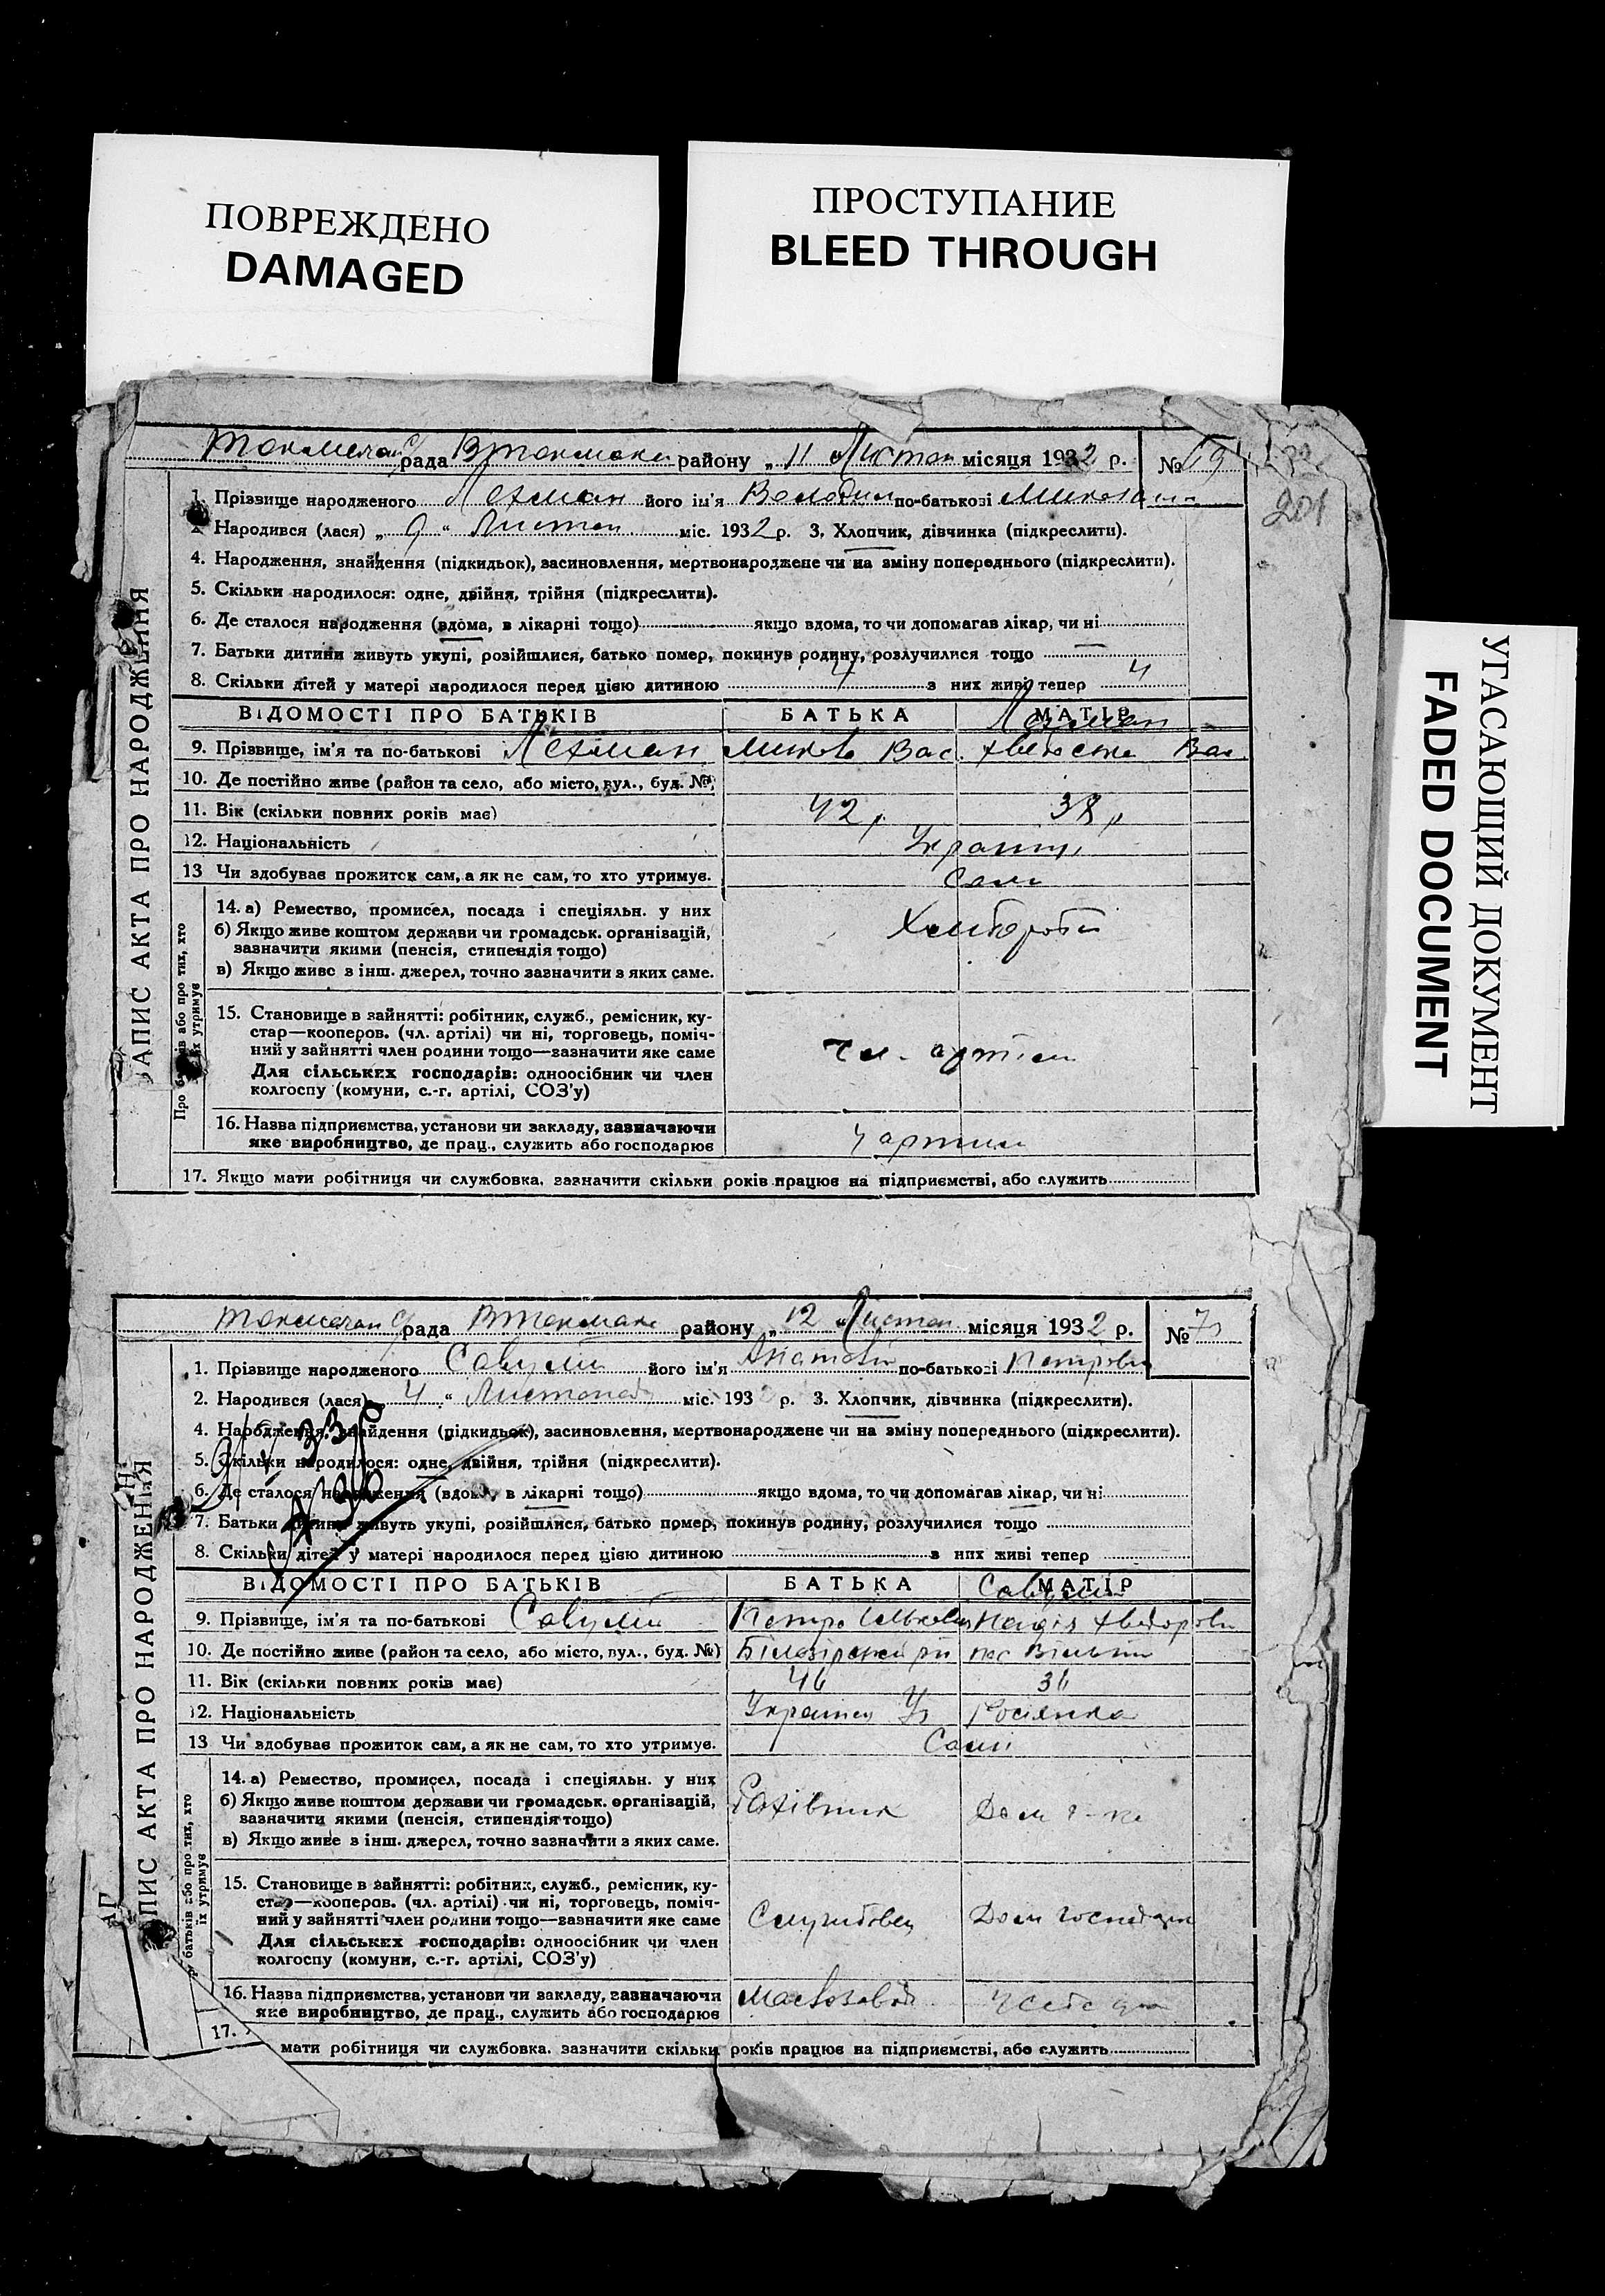 ПОВРЕЖДЕНО
DAMAGED
ПРОСТУПАНИЕ
BLEED THROUGH
УГАСАЮЩИЙ ДОКУМЕНТ
FADED DOCUMENT
201
АПИС АКТА ПРО НАРОДЖЕННЯ
рада району „ 11 " Листоп місяця 1932 р. №
1. Прізвище народженого його ім'я Володим по-батькові Микола
2. Народився (лася) „ 9 " Листоп міс. 1932 р. 3. Хлопчик, дівчинка (підкреслити).
4. Народження, знайдення (підкидьок), засиновлення, мертвонароджене чи на зміну попереднього (підкреслити).
5. Скільки народилося: одне, двійня, трійня (підкреслити).
6. Де сталося народження (вдома, в лікарні тощо) якщо вдома, то чи допомагав лікар, чи ні
7. Батьки дитини живуть укупі, розійшлися, батько помер, покинув родину, розлучилися тощо —
8. Скільки дітей у матері народилося перед цією дитиною 4 з них живі тепер 4
ВІДОМОСТІ ПРО БАТЬКІВ БАТЬКА МАТІР
9. Прізвище, ім'я та по-батькові Вас. Вас.
10. Де постійно живе (район та село, або місто, вул., буд. №)
11. Вік (скільки повних років має) 42 р. 38 р
12. Національність Українці
13 Чи здобуває прожиток сам, а як не сам, то хто утримує. Сами
Про батьків або про тих, хто їх утримує
14. а) Ремество, промисел, посада і спеціяльн. у них Хлібороби
б) Якщо живе коштом держави чи громадськ. організацій,
зазначити якими (пенсія, стипендія тощо)
в) Якщо живе з інш. джерел, точно зазначити з яких саме.
15. Становище в зайнятті: робітник, служб., ремісник, ку-
стар—кооперов. (чл. артілі) чи ні, торговець, поміч-
ний у зайнятті член родини тощо—зазначити яке саме чл. артіли
Для сільських господарів: одноосібник чи член
колгоспу (комуни, с.-г. артілі, СОЗ'у)
16. Назва підприємства, установи чи закладу, зазначаючи
яке виробництво, де прац., служить або господарює У артили
17. Якщо мати робітниця чи службовка, зазначити скільки років працює на підприємстві, або служить
ПИС АКТА ПРО НАРОДЖЕННЯ
рада району „ 12 " Листоп місяця 1932 р. №
1. Прізвище народженого його ім'я Анатолій по-батькові Петрович
2. Народився (лася) 4 " Листопад міс. 193 р. 3. Хлопчик, дівчинка (підкреслити).
4. Народження, знайдення (підкидьок), засиновлення, мертвонароджене чи на зміну попереднього (підкреслити).
5. Скільки народилося: одне, двійня, трійня (підкреслити).
6. Де сталося народження (вдома, в лікарні тощо) якщо вдома, то чи допомагав лікар, чи ні
7. Батьки дитини живуть укупі, розійшлися, батько помер, покинув родину, розлучилися тощо
8. Скільки дітей у матері народилося перед цією дитиною з них живі тепер
ВІДОМОСТІ ПРО БАТЬКІВ БАТЬКА МАТІР
9. Прізвище, ім'я та по-батькові Петро Надія
10. Де постійно живе (район та село, або місто, вул., буд. №)
11. Вік (скільки повних років має) 46 36
12. Національність Українец Росіянка
13 Чи здобуває прожиток сам, а як не сам, то хто утримує. Самі
батьків або про тих, хто їх утримує
14. а) Ремество, промисел, посада і спеціяльн. у них
б) Якщо живе коштом держави чи громадськ. організацій,
зазначити якими (пенсія, стипендія тощо)
в) Якщо живе з інш. джерел, точно зазначити з яких саме.
15. Становище в зайнятті: робітник, служб., ремісник, ку-
стар—кооперов. (чл. артілі) чи ні, торговець, поміч-
ний у зайнятті член родини тощо—зазначити яке саме Службовец Дом господарк
Для сільських господарів: одноосібник чи член
колгоспу (комуни, с.-г. артілі, СОЗ'у)
16. Назва підприємства, установи чи закладу, зазначаючи
яке виробництво, де прац., служить або господарює
17. мати робітниця чи службовка, зазначити скільки років працює на підприємстві, або служить